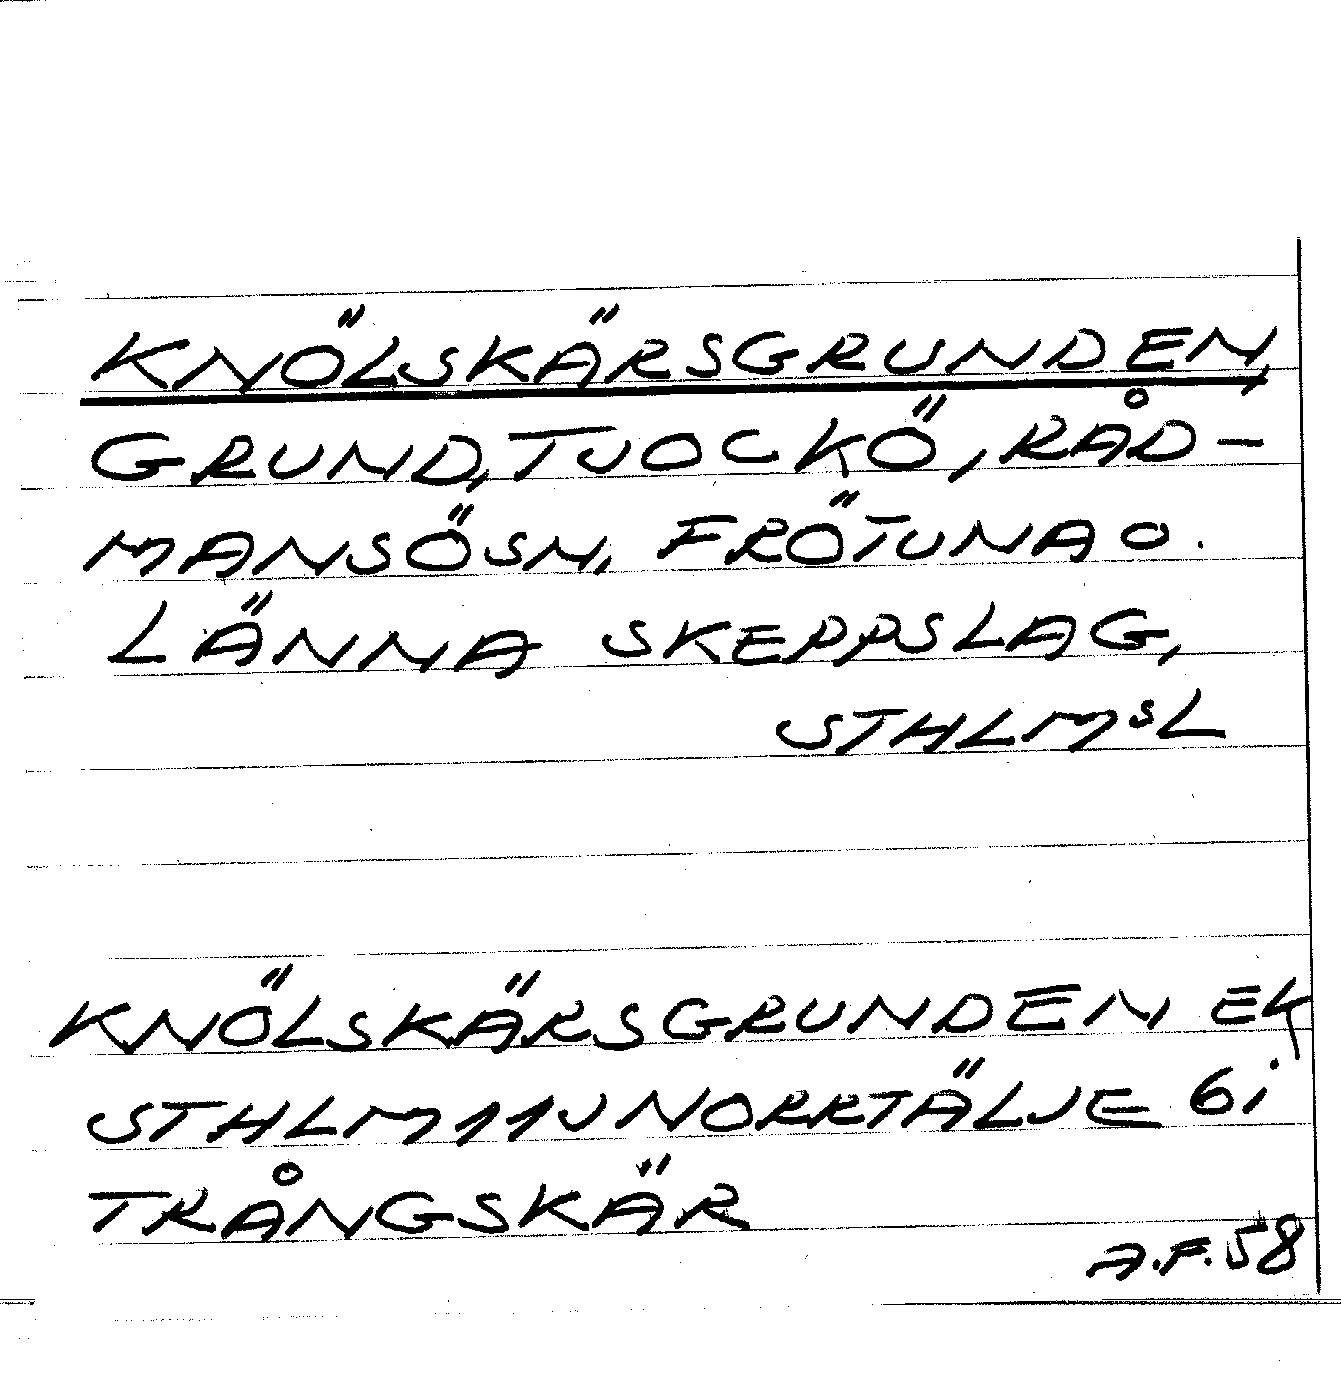 KNÖLSKÄRSGRUNDEN,
GRUND, TJOCKÖ, RÅD-
MANSÖSN, FRÖTUNA O.
LÄNNA SKEPPSLAG,
STHLMSL
KNÖLSKÄRSGRUNDEN EK
STHLM 11J NORRTÄLJE 6i
TRÅNGSKÄR
A.F.58